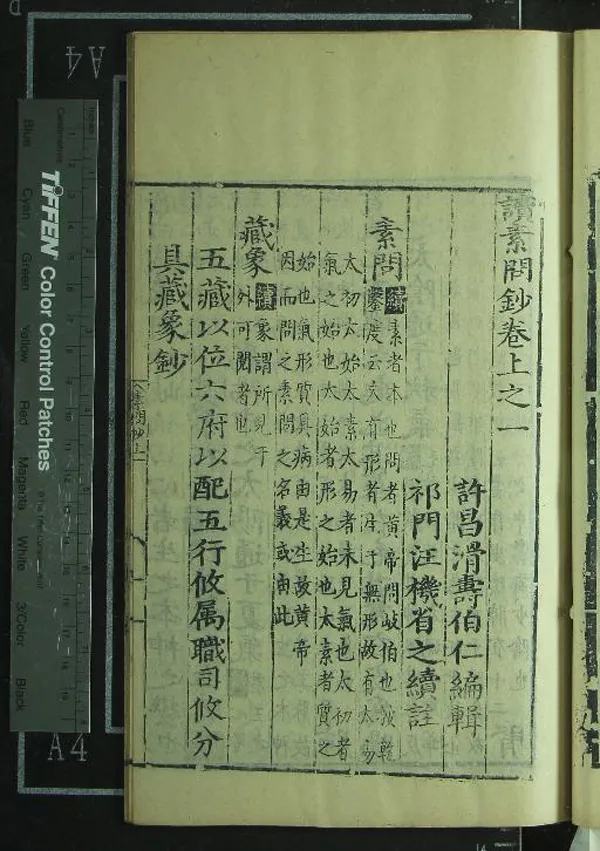 讀素問鈔卷上之一
許昌滑壽伯仁編輯
祁門汪機省之續註
素問續素者本也問者黃帝問岐伯也按乾
鑿度云夫有形者生于無形故有太易
太初太始太素太易者未見氣也太初者
氣之始也太始者形之始也太素者質之
始也氣形質具病由是生故黃帝
因而問之素問之名義或由此
藏象續象謂所見于
外可閱者也
五藏以位六府以配五行攸属職司攸分
具藏象鈔
素問鈔上一
TIFFEN Color Control Patches
Blue
Cyan
Green
Yellow
Red
Magenta
White
3/Color
Black
Centimetres
Inches
A4
A4